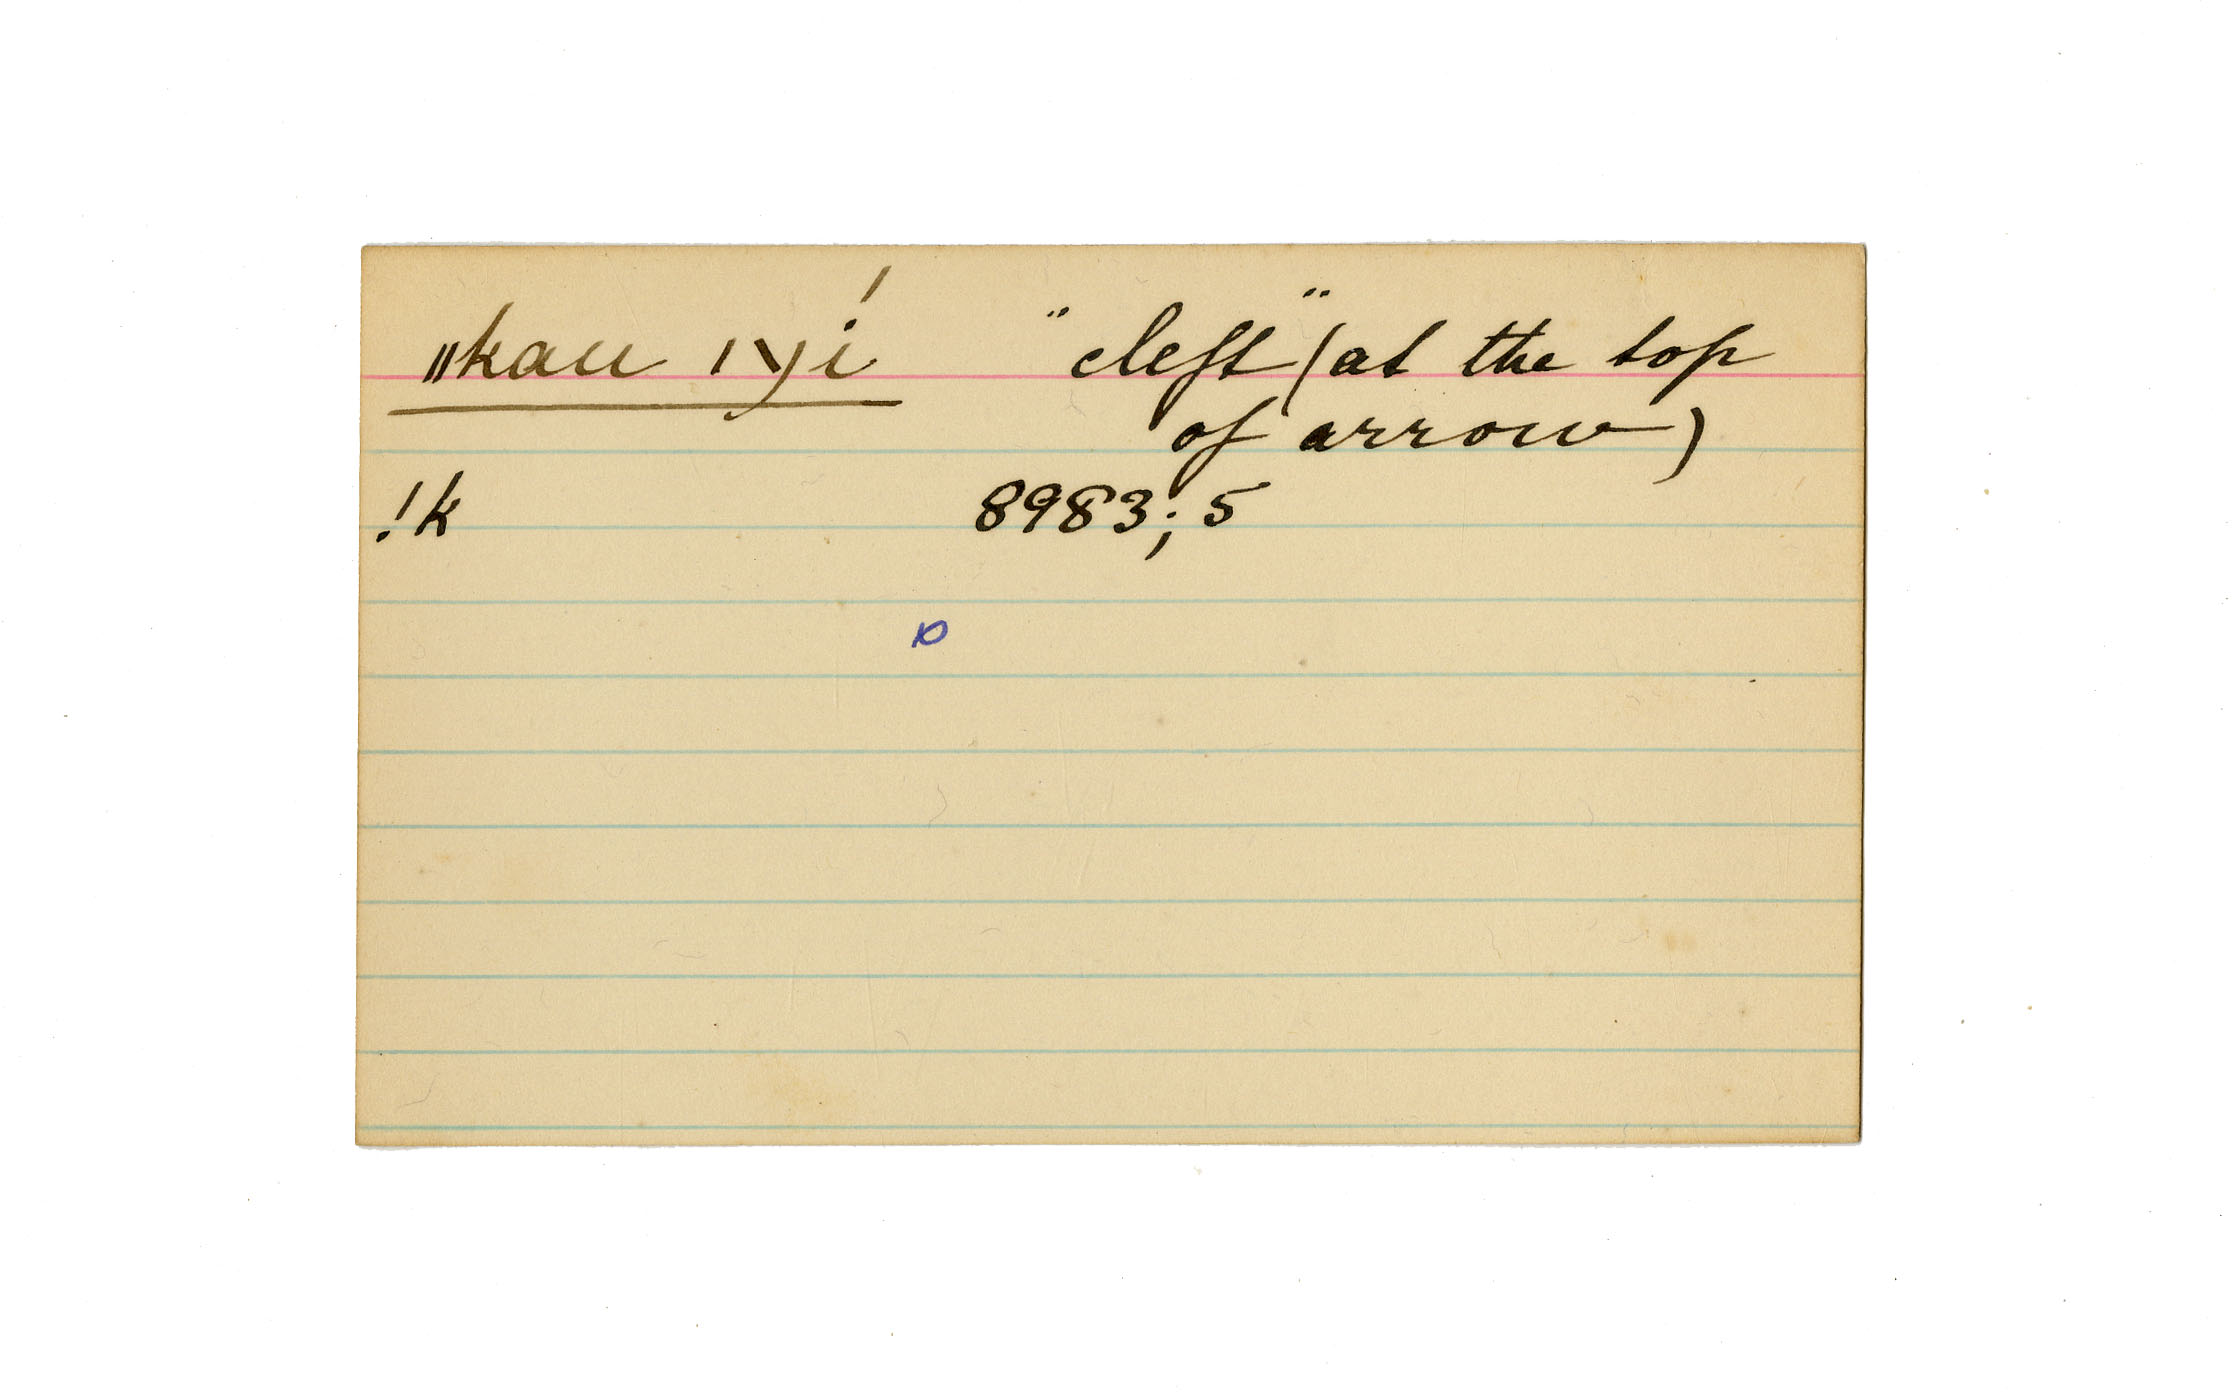 ǁkau ıyi̍ "cleft" (at the top
of arrow)
!k 8983; 5